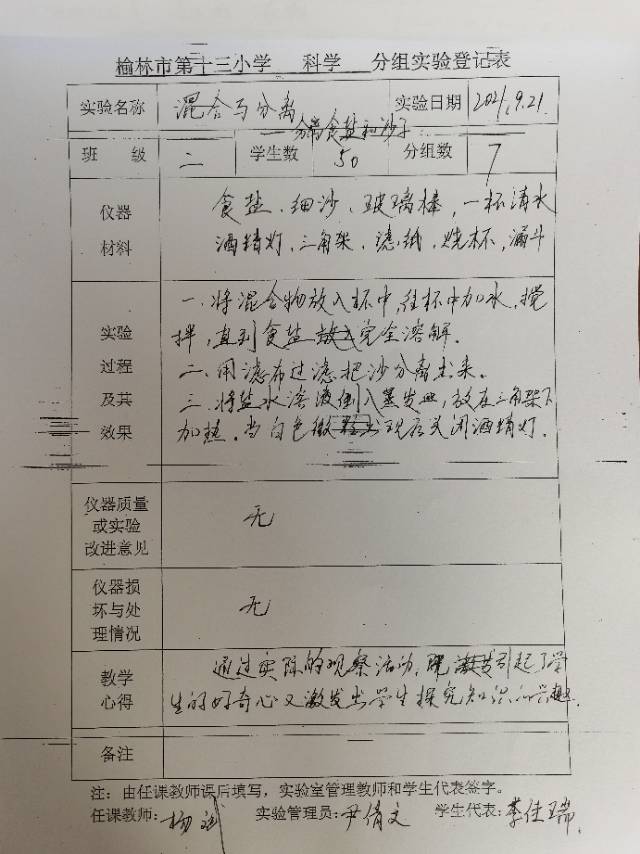 榆林市第十三小学 科学 分组实验登记表
实验名称 混合与分离 实验日期 2021.9.21.
——分离食盐和沙子
班 级 二 学生数 50 分组数 7
仪器 食盐、细沙、玻璃棒，一杯清水
材料 酒精灯，三角架、滤纸，烧杯，漏斗
一、将混合物放入杯中，往杯中加水，搅
实验 拌，直到食盐完全溶解.
过程 二、用滤布过滤把沙分离出来。
及其 三、将盐水溶液倒入蒸发皿，放在三角架下
效果 加热，当白色微粒出现后关闭酒精灯.
仪器质量
或实验 无
改进意见
仪器损
坏与处 无
理情况
教学 通过实际的观察活动，引起了学
心得 生的好奇心又激发出学生探究知识的兴趣.
备注
注：由任课教师课后填写，实验室管理教师和学生代表签字。
任课教师：杨 实验管理员：尹倩文 学生代表：李佳瑞